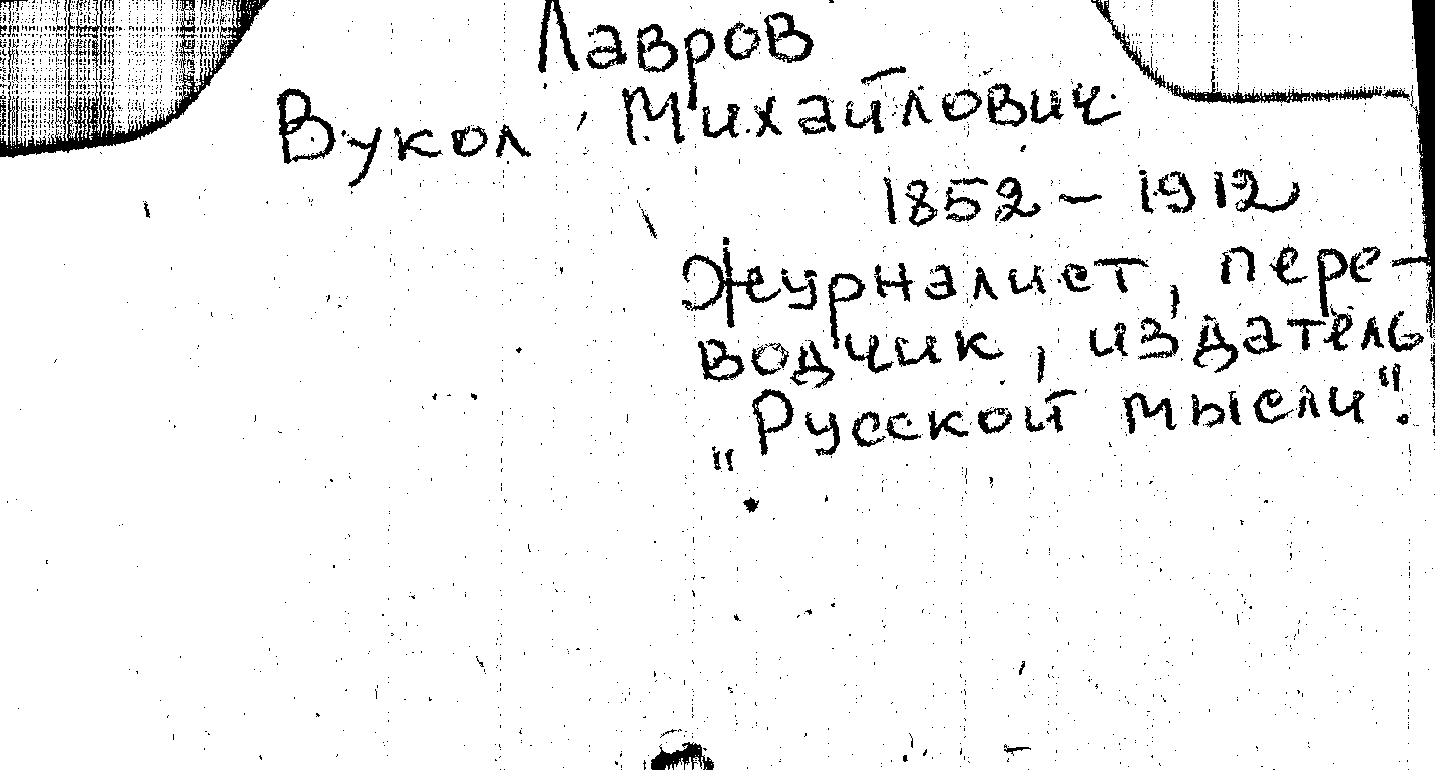 Лавров
Вукол Михайлович
1852 – 1912
Журналист, пере-
водчик, издатель
„Русской мысли".